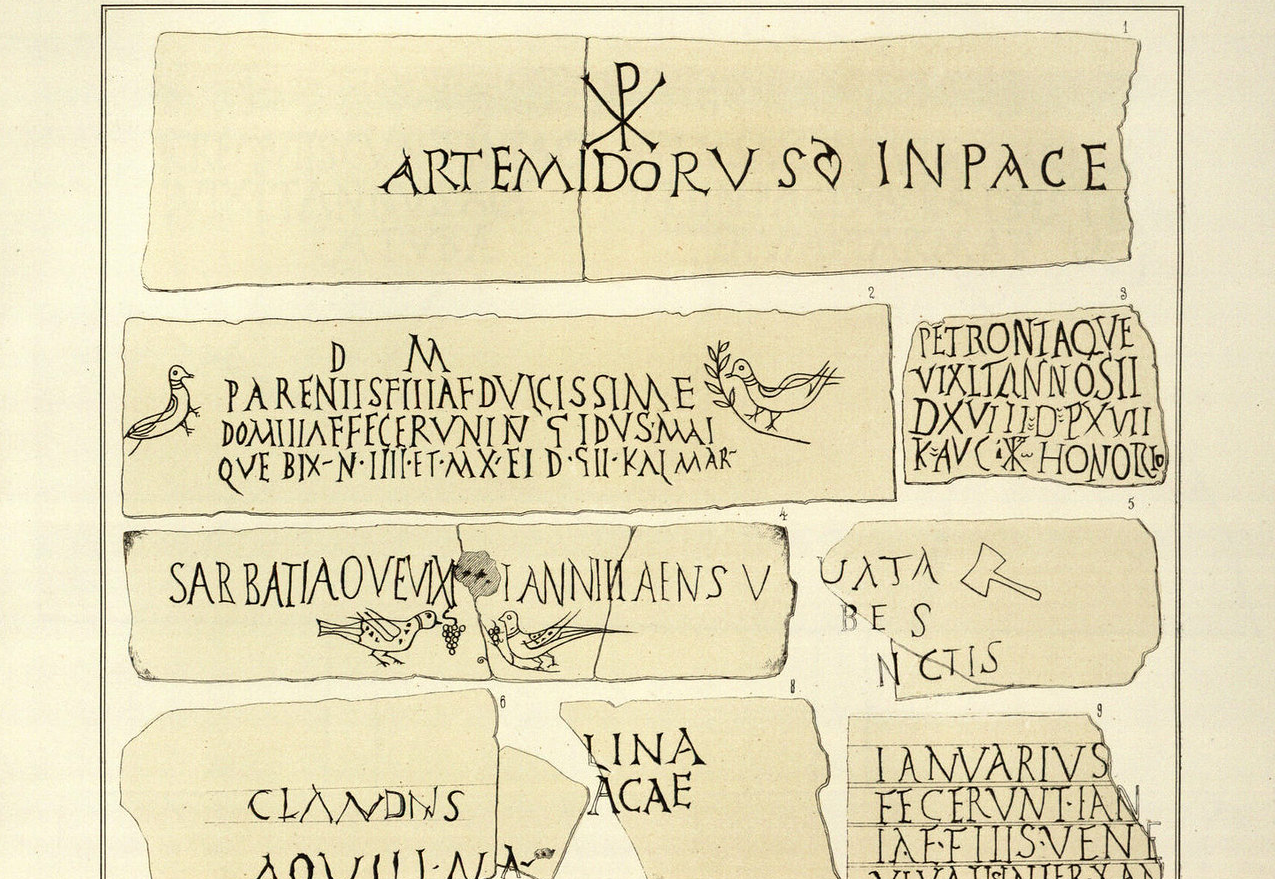 1
ARTEMIDORVS IN PACE
2
D M
PARENIISFIIIAFDVLCISSIME
DOMIIIAFFECERVNIN Ϛ IDVS·MAI
QVE BIX–N·IIII·ET·MX·EI D·ϚII·KAL MAR–
3
PETRONIAQVE
VIXITANNOSII
DXVIIII·D·PXVII
K·AVC· HONORIO
4
SABBATIAQVEVIX IANNIIIAENSV
5
VATA
BES
NCTIS
6
CLAVDIVS
AQVILINA
8
LINA
ACAE
9
IANVARIVS
FECERVNT·IAN
IAE·FIIIS·VENE